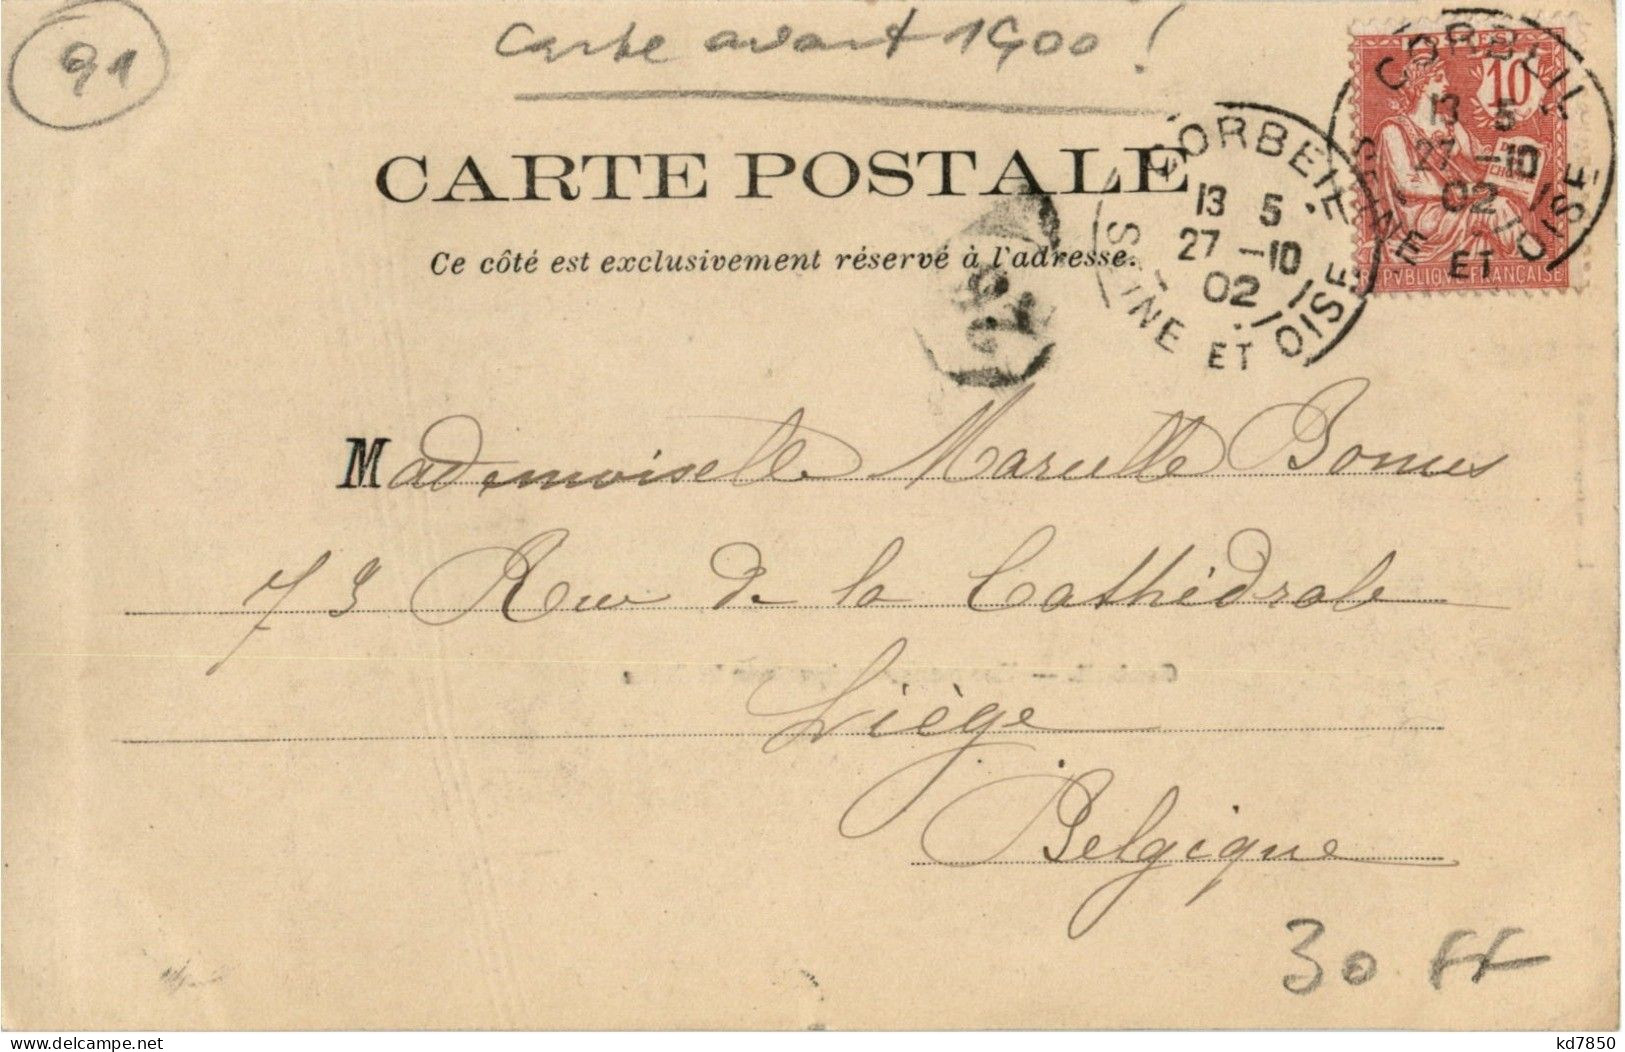 91
Carte avant 1900 !
CARTE POSTALE
Ce côté est exclusivement réservé à l'adresse.
10
REPVBLIQVE FRANÇAISE
CORBEIL
13 5
27 -10
02
SEINE ET OISE
CORBEIL
13 5
27 -10
02
SEINE ET OISE
Mademoiselle Marcelle
73 Rue de la Cathédrale
Liége
Belgique
30 FF
kd7850